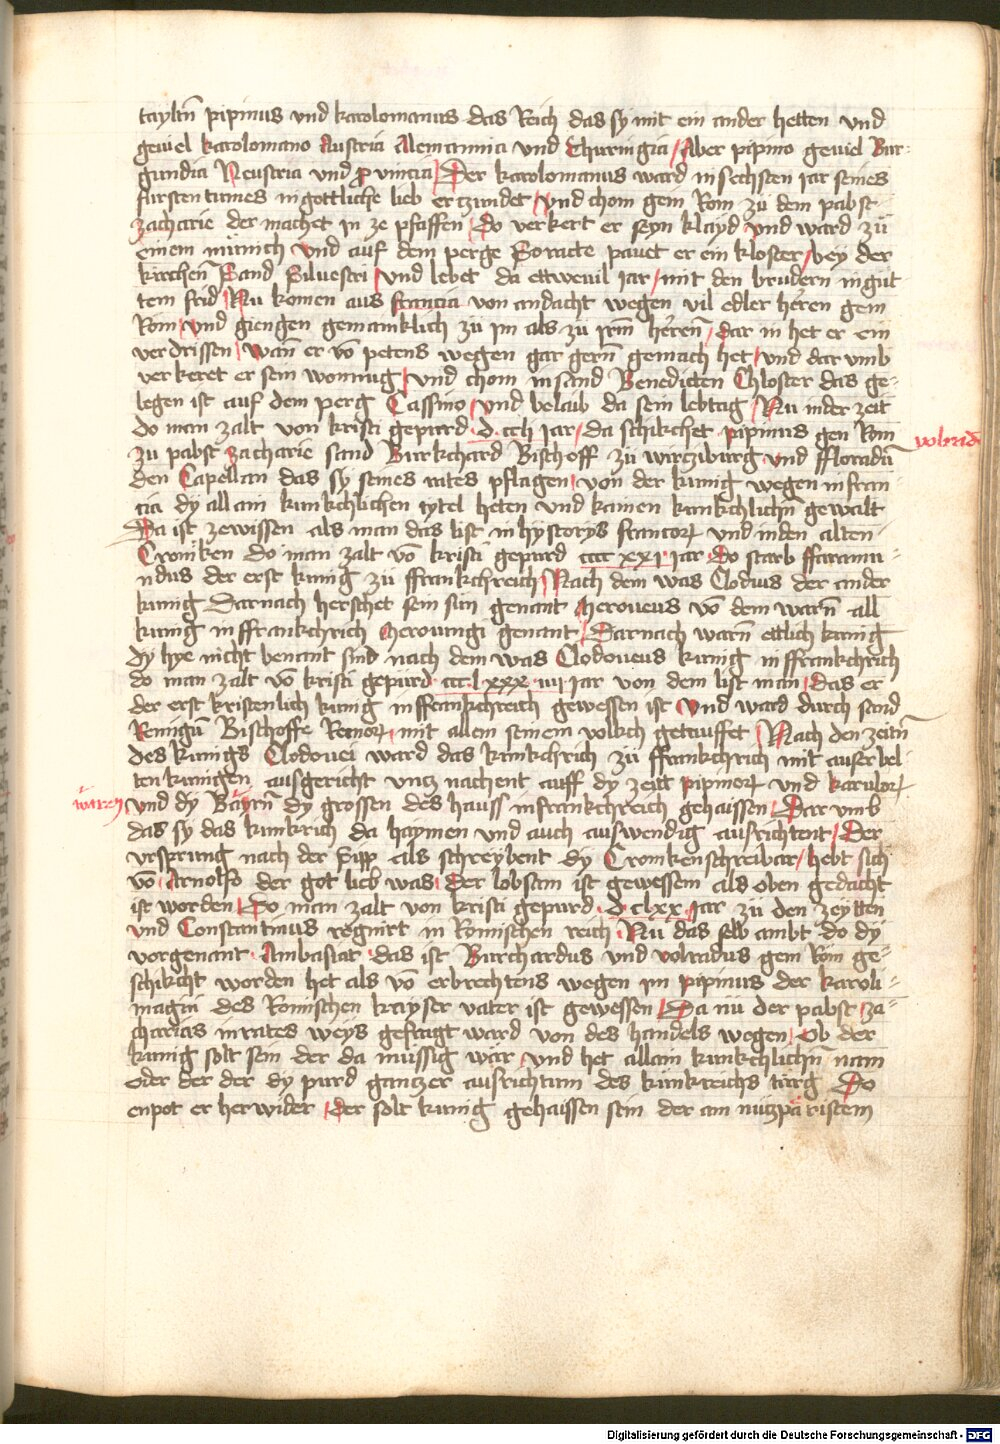 tayltn̄ pipinus vnd karolomanus das Reich das sy mit ein ander hetten vnd
geuiel karolomano Austria Alemannia vnd Thuringia / Aber pipino geuiel Bur-
gundia Neustria vnd Prouincia / Der karolomanus ward in sechsten iar seines
fursten tumes in gottliche lieb erczundet / vnd chom gem Rom zu dem pabst
zacharie der machet jn ze pfaffen / Do verkert er seyn klayd vnd ward zu
einem münich vnd auf dem perge Soracte pauet er ein kloster / bey der
kirchen̄ Sand Siluestri / vnd lebet da ettweuil Jar / mit den brudern in gut
tem frid / Nu komen aus francia von andacht wegen vil edler heren gem
Rom / vnd giengen gemainklich zu jm als zu jrm̄ heren̄ / Dar in het er ein
verdrissen / wan̄ er vō petens wegen gar gern̄ gemach het / vnd dar vmb
verkeret er sein wonnug / vnd chom in sand Benedicten Chloster das ge-
legen ist auf dem perg Cassino / vnd belaib da sein lebtag / Nu in der zeit
do man zalt von kristi gepurd d cch Jar / da schikchet pipinus gen Rom
zu pabst zacharie sand Burkchard Bischoff zu wirtzburg vnd ffloradū
volrad
den Capellan das sy seines rates pflagen / von der kunig wegen in fran-
cia dy allain kunkchlichen tytel heten vnd kainen kunkchlichn̄ gewalt
Da ist zewissen als man das list in hystorys francorꝝ vnd in den alten
Croniken do man zalt vō kristi gepurd cccc xxi Jar Do starb ffaramu-
ndus der erst kunig zu ffrankchreich / Nach dem was Clodius der ander
kunig Darnach herschet sein sun genant Meroueus vō dem warn̄ all
kunig in ffrankchrich Merouingi genant / Darnach warn̄ ettlich kunig
dy hye nicht benant sind nach dem was Clodoueus kunig in ffrankchrich
do man zalt vō kristi gepurd ccc lxxx iiii iar von dem list man / das er
der erst kristenlich kunig in ffrankchreich gewessen ist vnd ward durch sand
Remigiū Bischoffe Remorꝝ / mit allem seinem volkch getauffet / Nach den zeitn̄
des kunigs Clodouei ward das kunkchrich zu ffrankchrich mit auserbel-
ten kunigen ausgericht vntz nachent auff dy zeitt pipinorꝝ vnd karulorꝝ
waren
vnd dy Bayrn̄ dy grossen des hauss in frankchreich gehaissen / Dar vmb
das sy das kunkrich da haymen vnd auch auswendig ausrichtent / Der
vrsprung nach der Sipp als schreybent dy Cronikenschreibar / hebt sich
vō Arnolfo der got lieb was / Der lobsam ist gewessem als oben gedacht
ist worden / Do man zalt von kristi gepurd d clxx Jar zu den zeytten
vnd Constantinus regnirt in Romischen reich / Nu das selb ambt do dy
vorgenant Ambasiat das ist Burchardus vnd volradus gem Rom ge-
schikcht worden het als vō erbrechtens wegen jm pipinus der karoli-
magni des Romischen kayser vater ist gewessen / Da nu der pabst za-
charias in rates weys gefragt ward von des handels wegen / Ob der
kunig solt sein der da mussig wär vnd het allain kunkchlichn̄ nam
oder der der dy purd gantzer ausrichtum des kunkreichs trug Do
enpot er herwider / Der solt kunig gehaissen sein der am nützparistem
Digitalisierung gefördert durch die Deutsche Forschungsgemeinschaft - DFG